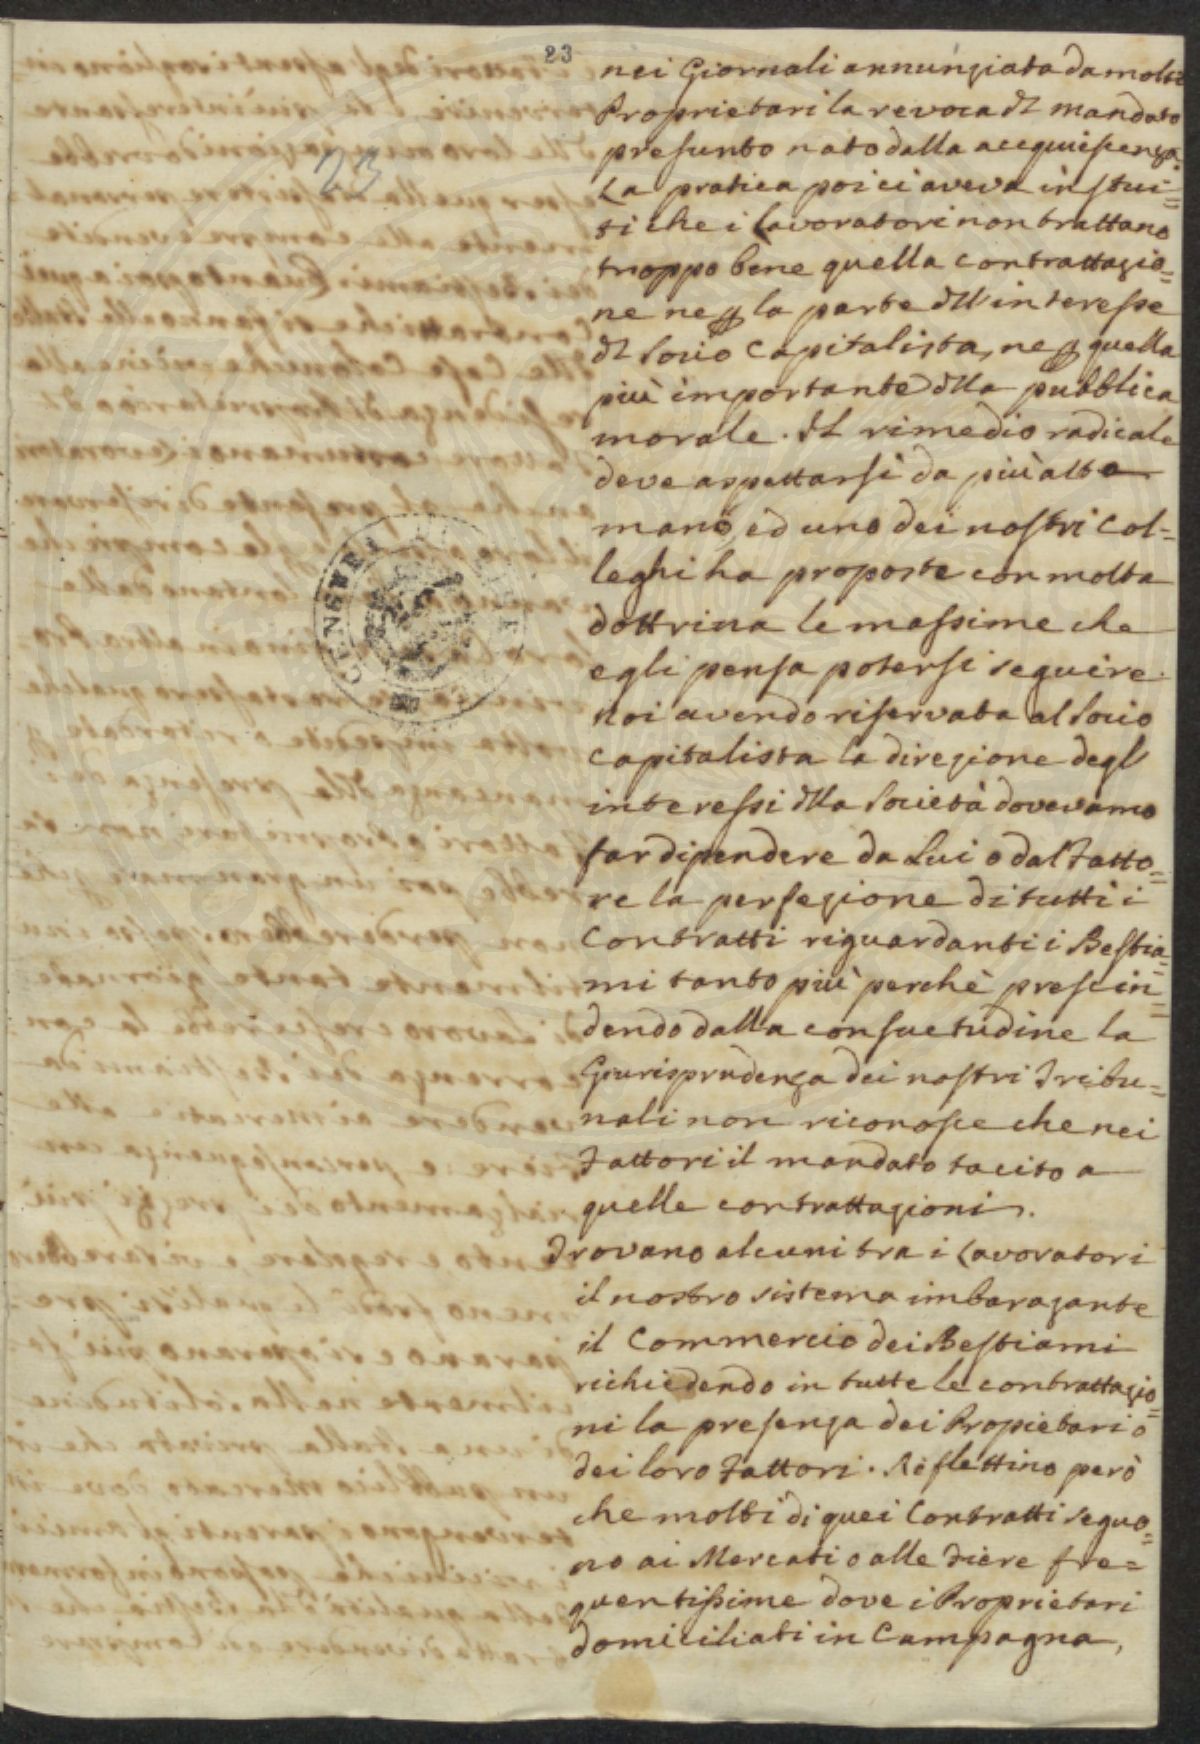 23
23
nei Giornali annunziata da molti
Proprietari la revoca del mandato
presunto nato dalla acquiescenza.
La pratica poi ci aveva instrui=
ti che i Lavoratori non trattano
troppo bene quella contrattazio=
ne ne per la parte dell'interesse
del Socio Capitalista, ne per quella
più importante della pubblica
morale. Il rimedio radicale
deve aspettarsi da più alta
mano, ed uno dei nostri Col=
leghi ha proposte con molta
dottrina le massime che
egli pensa potersi seguire.
Noi avendo riservata al Socio
Capitalista la direzione degl'
interessi della Società dovevamo
far dipendere da Lui o dal Fatto=
re la perfezione di tutti i
Contratti riguardanti i Bestia=
mi tanto più perchè prescin=
dendo dalla consuetudine la
Giurisprudenza dei nostri Tribu=
nali non riconosce che nei
Fattori il mandato tacito a
quelle contrattazioni.
Trovano alcuni tra i Lavoratori
il nostro sistema imbarazante
il Commercio dei Bestiami
richiedendo in tutte le contrattazio=
ni la presenza dei Propietari o
dei loro Fattori. Reflettino però
che molti di quei Contratti seguo=
no ai Mercati o alle Fiere fre=
quentissime dove i Proprietari
domiciliati in Campagna,